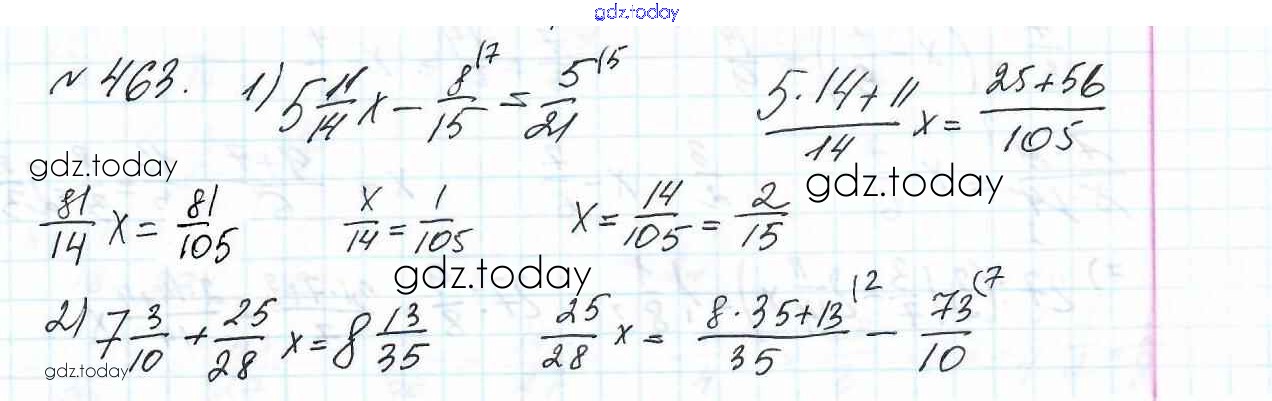 gdz.today
№ 463. 1) 5 11/14 x − 8/15 (7 = 5/21 (5    (5·14+11)/14 x = (25+56)/105
gdz.today
gdz.today
81/14 x = 81/105    x/14 = 1/105    x = 14/105 = 2/15
gdz.today
2) 7 3/10 + 25/28 x = 8 13/35    25/28 x = (8·35+13)/35 (2 − 73/10 (7
gdz.today